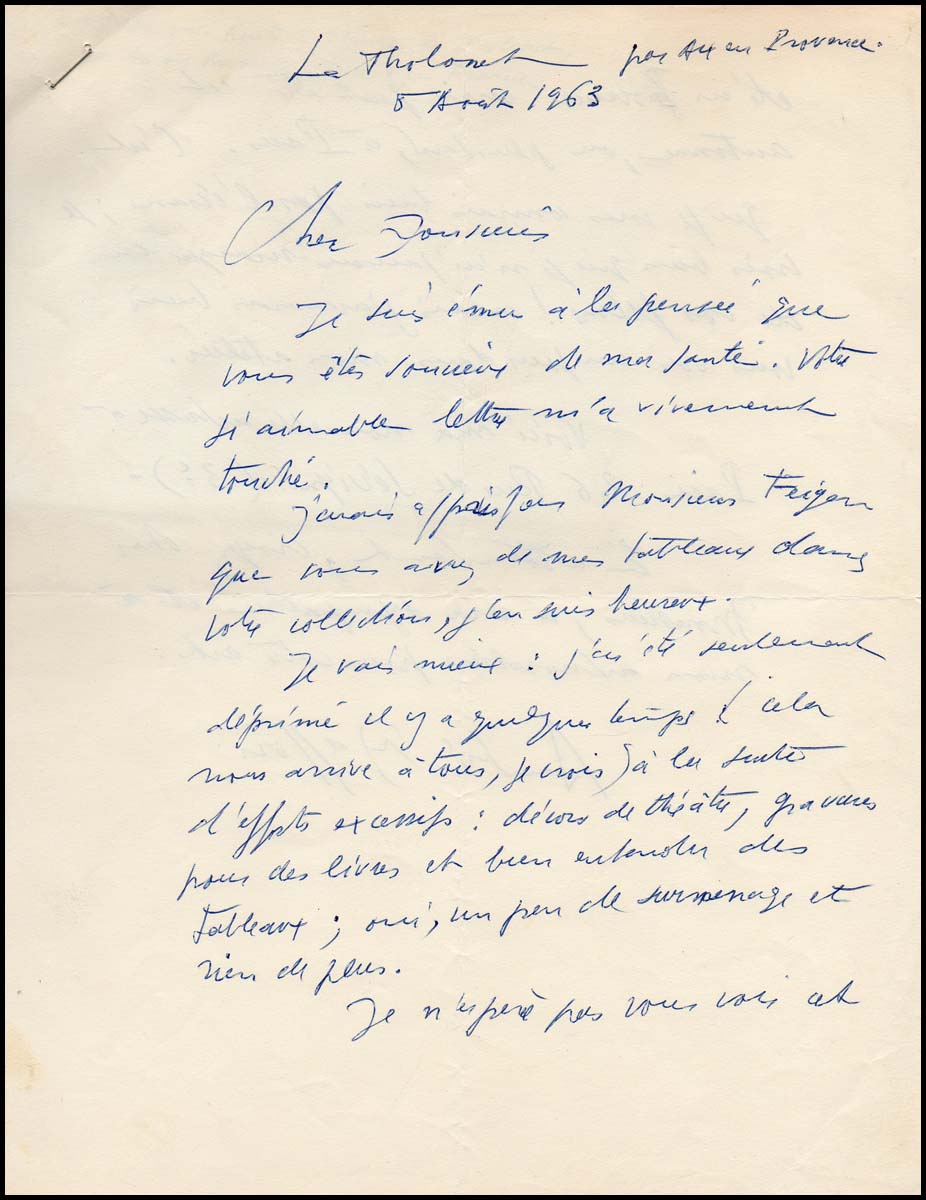 Le Tholonet par Aix en Provence.
8 Août 1963
Cher Monsieur
Je suis ému à la pensée que
vous êtes soucieux de ma santé. Votre
si aimable lettre m'a vivement
touché.
J'avais appris par Monsieur Feigen
que vous avez de mes tableaux dans
votre collection, j'en suis heureux.
Je vais mieux : j'ai été seulement
déprimé il y a quelques temps (cela
nous arrive à tous, je crois) à la suite
d'efforts excessifs : décors de théâtre, gravures
pour des livres et bien entendu des
tableaux ; oui, un peu de surmenage et
rien de plus.
Je n'espère pas vous voir cet